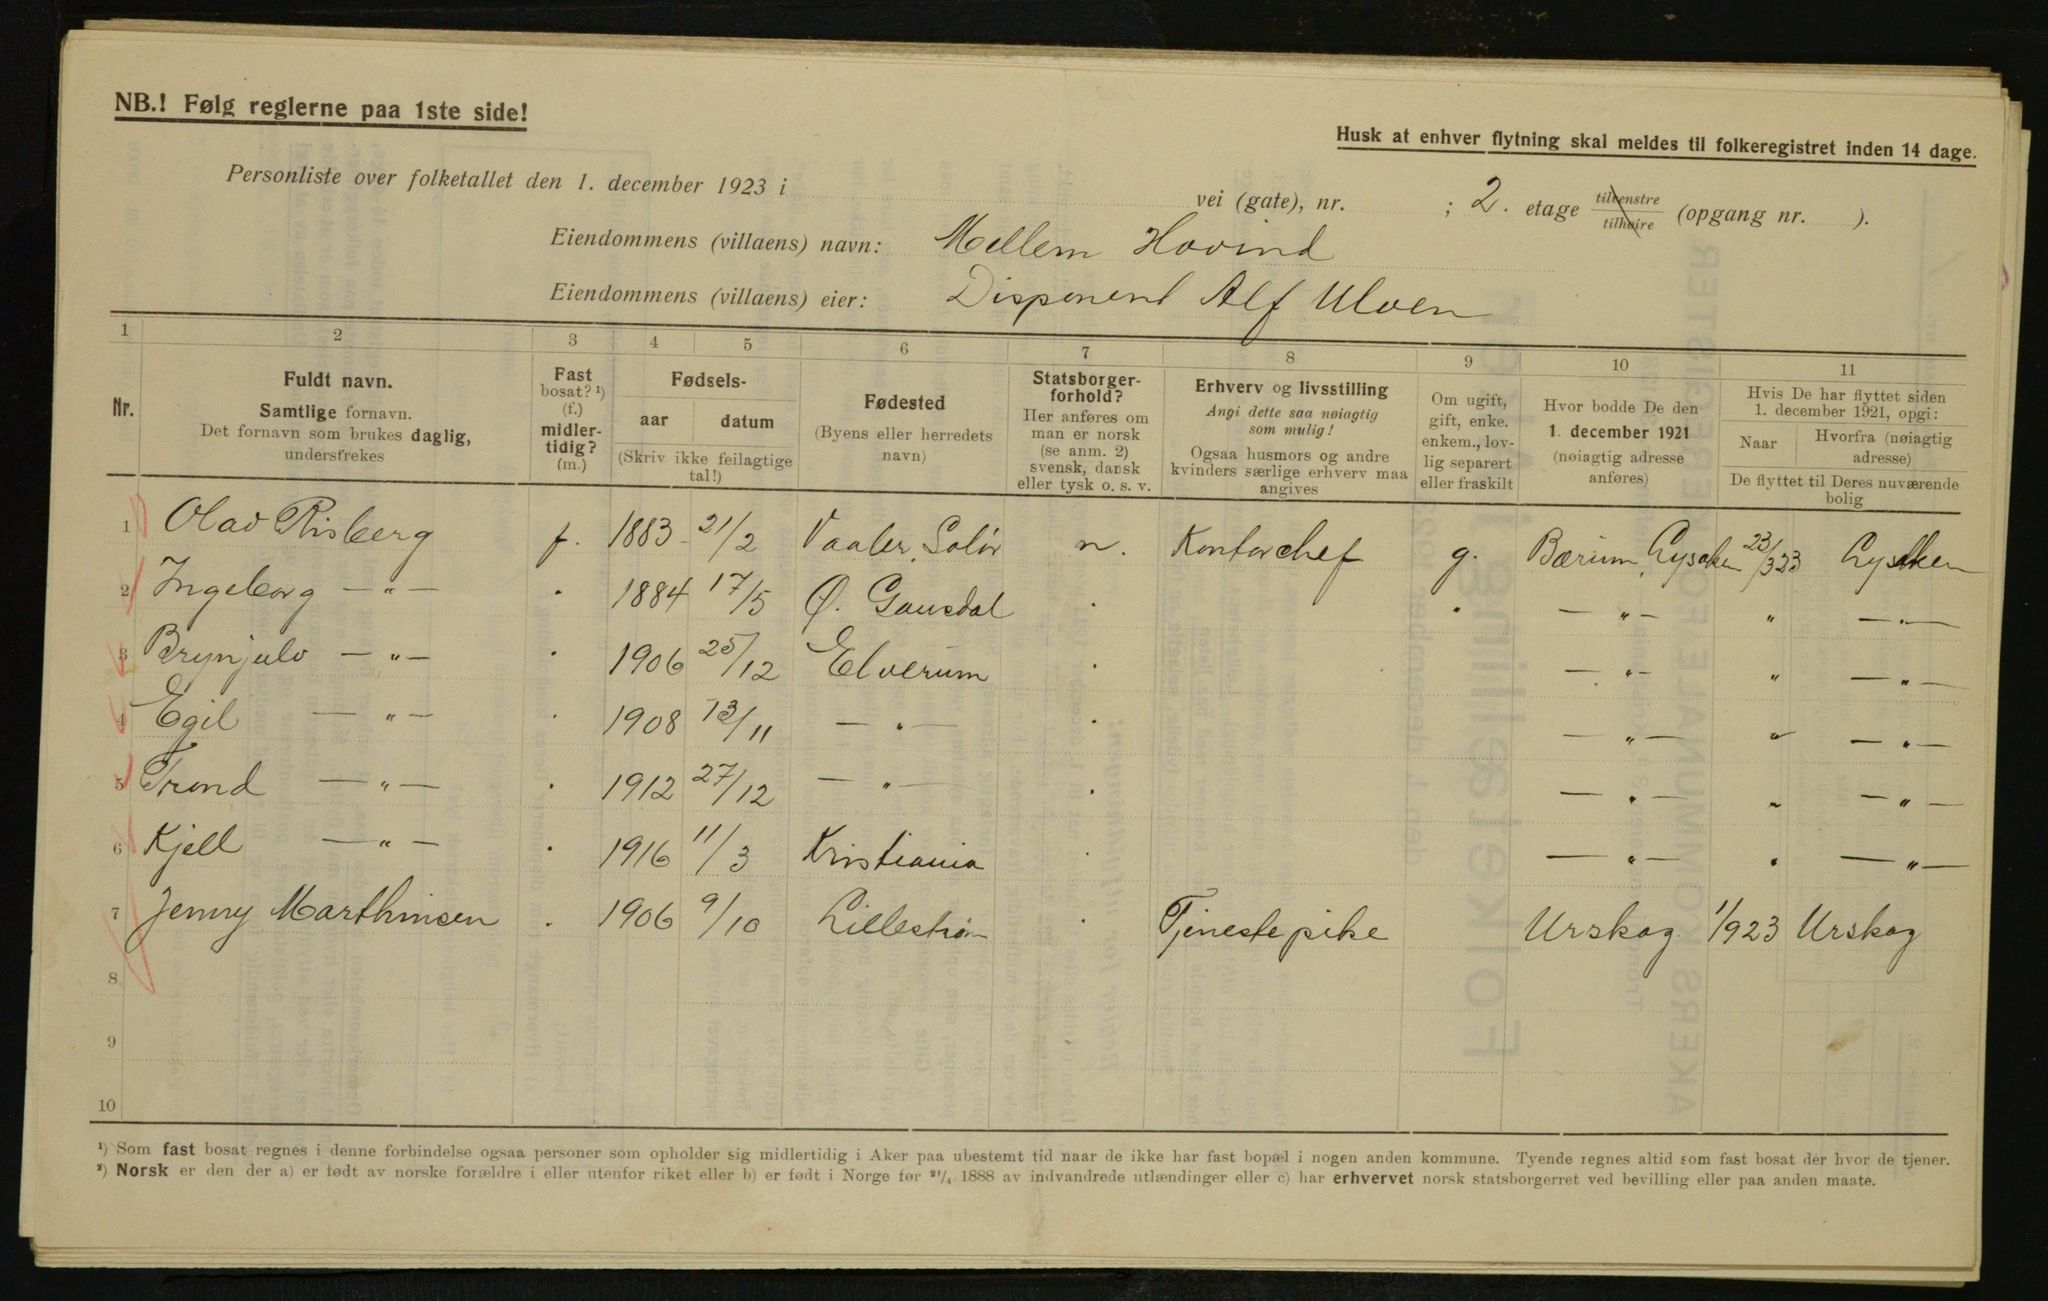 NB.! Følg reglerne paa 1ste side!
Husk at enhver flytning skal meldes til folkeregistret inden 14 dage.
Personliste over folketallet den 1. december 1923 i vei (gate), nr. ; 2. etage tilvenstre tilhøire (opgang nr. ).
Eiendommens (villaens) navn: Mellem Hovind
Eiendommens (villaens) eier: Disponent Alf Ulven
1 2 3 4 5 6 7 8 9 10 11
Nr.
Fuldt navn.
Samtlige fornavn.
Det fornavn som brukes daglig,
understrekes
Fast
bosat? ¹)
(f.)
midler-
tidig?
(m.)
Fødsels-
aar datum
(Skriv ikke feilagtige
tal!)
Fødested
(Byens eller herredets
navn)
Statsborger-
forhold?
Her anføres om
man er norsk
(se anm. 2)
svensk, dansk
eller tysk o. s. v.
Erhverv og livsstilling
Angi dette saa nøiagtig
som mulig!
Ogsaa husmors og andre
kvinders særlige erhverv maa
angives
Om ugift,
gift, enke.
enkem., lov-
lig separert
eller fraskilt
Hvor bodde De den
1. december 1921
(nøiagtig adresse
anføres)
Hvis De har flyttet siden
1. december 1921, opgi:
Naar
Hvorfra (nøiagtig
adresse)
De flyttet til Deres nuværende
bolig
1 Olav Risberg f. 1883 21/2 Vaaler, Solør n. Kontorchef g. Bærum, Lysaker 23/3 23 Lysaker
2 Ingeborg — " — " 1884 17/5 Ø. Gausdal " " — " — " — " —
3 Brynjulv — " — " 1906 25/12 Elverum " — " — " — " —
4 Egil — " — " 1908 13/11 — " — " — " — " — " —
5 Trond — " — " 1912 27/12 — " — " — " — " — " —
6 Kjell — " — " 1916 11/3 Kristiania " — " — " — " —
7 Jenny Marthinsen " 1906 9/10 Lillestrøm " Tjenestepike Urskog 1/9 23 Urskog
8
9
10
¹) Som fast bosat regnes i denne forbindelse ogsaa personer som opholder sig midlertidig i Aker paa ubestemt tid naar de ikke har fast bopæl i nogen anden kommune. Tyende regnes altid som fast bosat der hvor de tjener.
²) Norsk er den der a) er født av norske forældre i eller utenfor riket eller b) er født i Norge før ²¹/₄ 1888 av indvandrede utlændinger eller c) har erhvervet norsk statsborgerret ved bevilling eller paa anden maate.